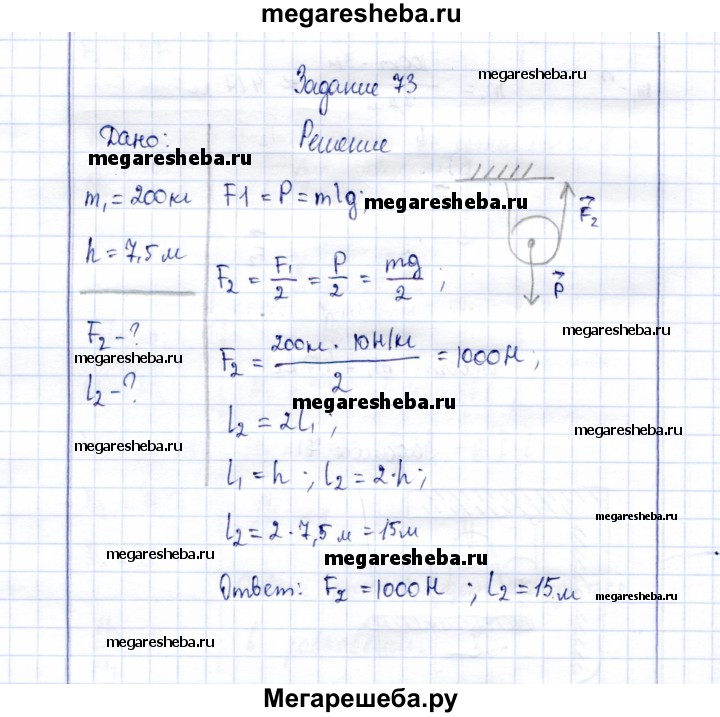 megaresheba.ru
Задание 73
megaresheba.ru
Дано:
Решение
megaresheba.ru
m₁ = 200 кг
F1 = P = m1g;
megaresheba.ru
F₂
h = 7,5 м
F₂ = F₁/2 = P/2 = mg/2 ;
P
F₂ - ?
megaresheba.ru
megaresheba.ru
F₂ = 200кг · 10Н/кг / 2 = 1000 Н ;
l₂ - ?
megaresheba.ru
l₂ = 2l₁ ;
megaresheba.ru
megaresheba.ru
l₁ = h ; l₂ = 2·h ;
megaresheba.ru
l₂ = 2 · 7,5 м = 15 м
megaresheba.ru
megaresheba.ru
Ответ: F₂ = 1000 Н ; l₂ = 15 м
megaresheba.ru
megaresheba.ru
Мегарешеба.ру